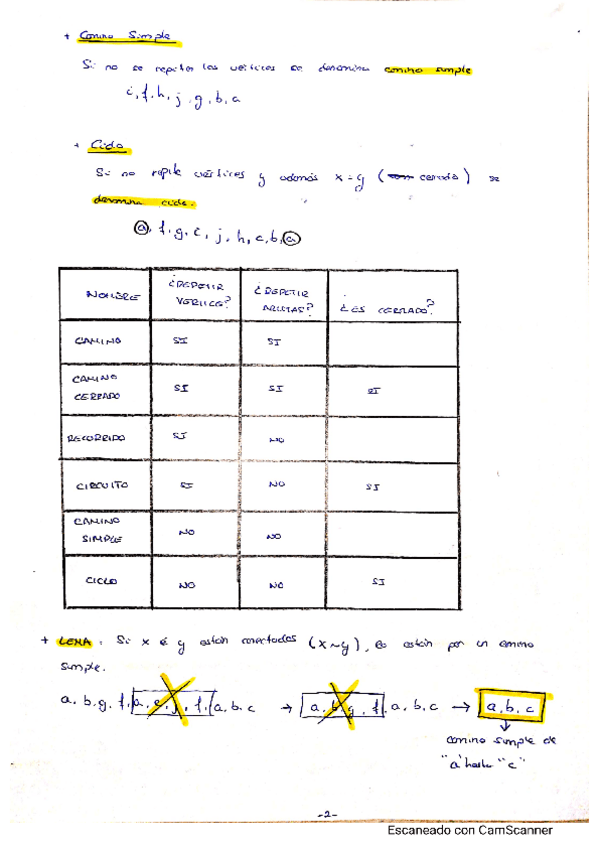 + Camino Simple
Si no se repiten los vértices se denomina camino simple
i, f, h, j, g, b, a
+ Ciclo
Si no repite vértices y además x = y ( cerrado ) se
denomina ciclo.
a, f, g, e, j, h, c, b, a
NOMBRE
¿REPETIR VERTICE?
¿REPETIR ARISTAS?
¿ES CERRADO?
CAMINO SI SI
CAMINO CERRADO SI SI SI
RECORRIDO SI NO
CIRCUITO SI NO SI
CAMINO SIMPLE NO NO
CICLO NO NO SI
+ LEMA : Si x é y están conectados (x~y), lo están por un camino
simple.
a, b, g, f, a, e, j, f, a, b, c → a, b, g, f, a, b, c → a, b, c
camino simple de
"a" hasta "c"
-2-
Escaneado con CamScanner